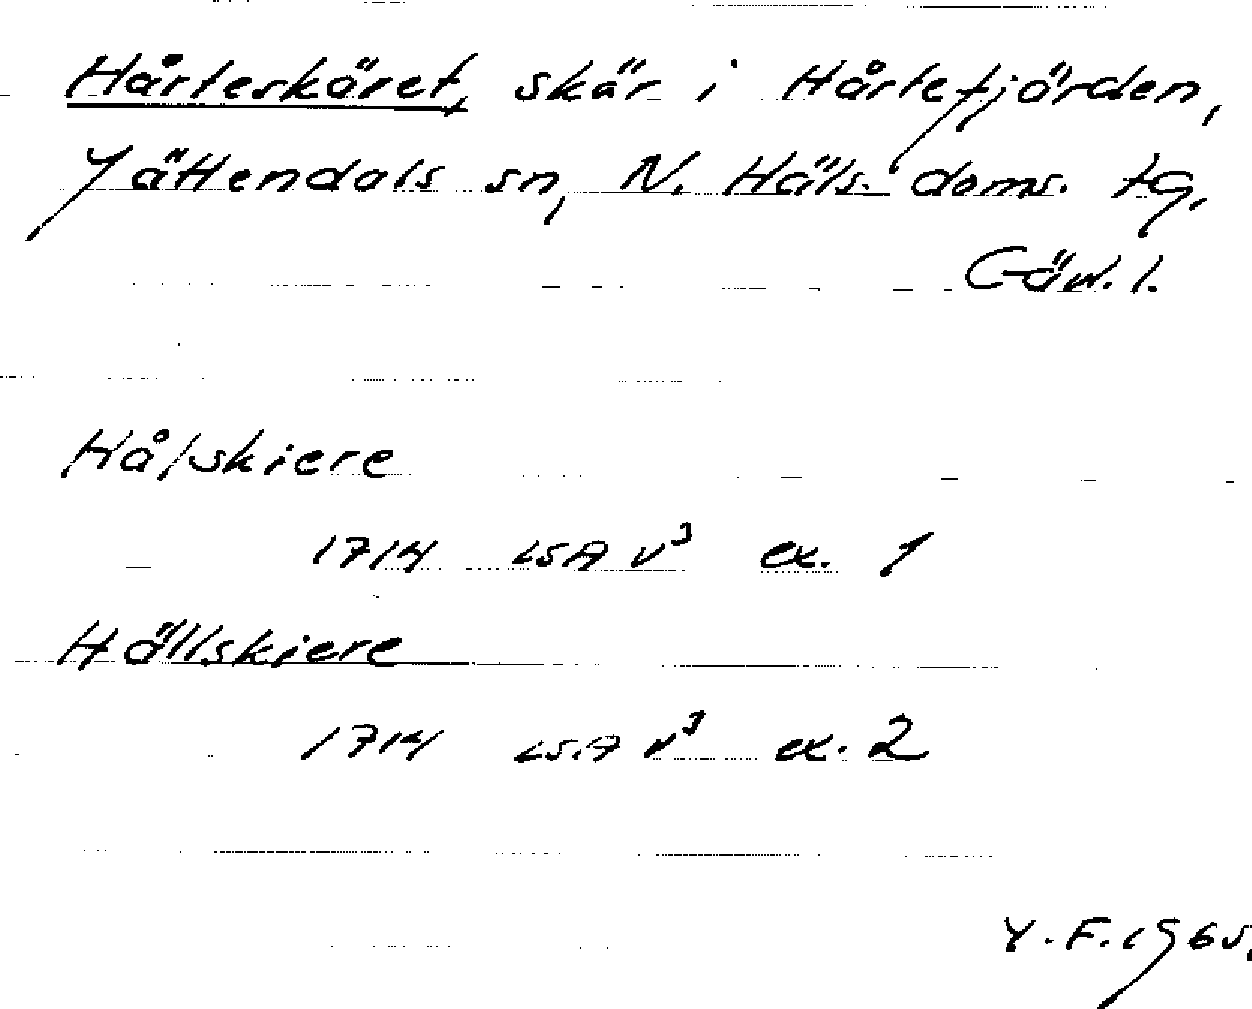 Hårteskäret, skär i Hårtefjärden,
Jättendals sn, N. Häls. doms. tg,
Gävl. l.
Hålskiere
1714 LSA V³ ex. 1
Hällskiere
1714 LSA V³ ex. 2
Y. F. 1965.